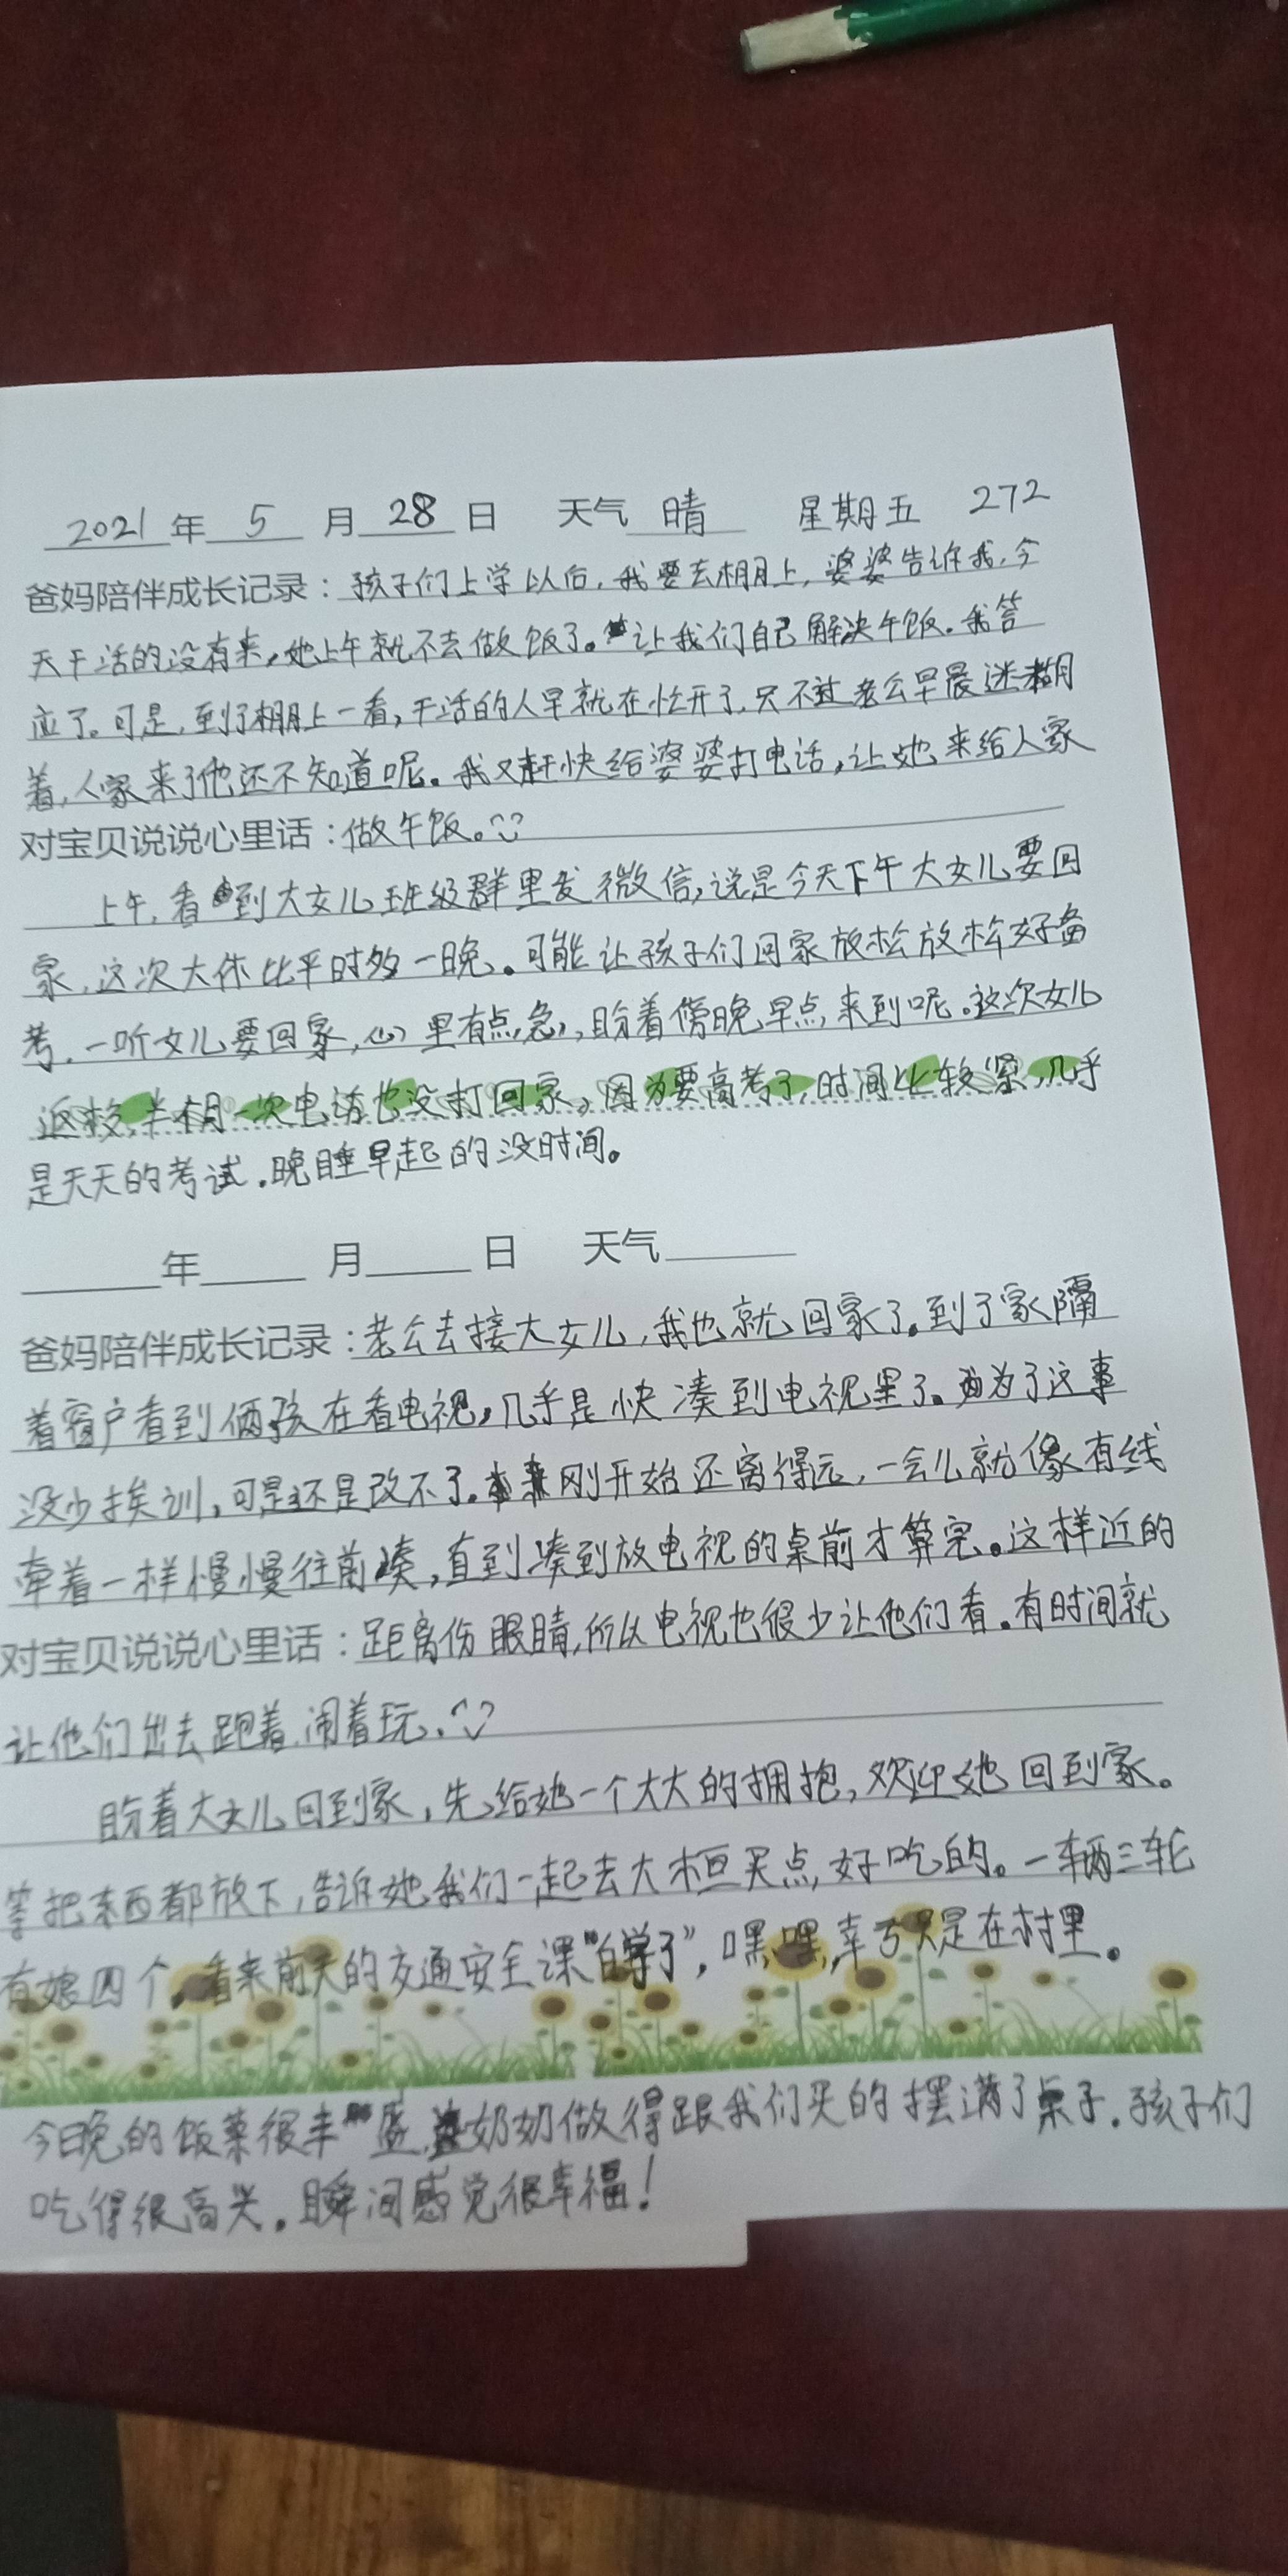 2021年 5 月 28 日 天气 晴 星期五 272
爸妈陪伴成长记录：孩子们上学以后，我要去棚上，婆婆告诉我，今
天干活的没有来，她上午就不去做饭了。让我们自己解决午饭。我答
应了。可是，到了棚上一看，干活的人早就在忙开了，只不过老公早晨迷糊
着，人家来了他还不知道呢。我又赶快给婆婆打电话，让她来给人家
对宝贝说说心里话：做午饭。
上午，看到大女儿班级群里发微信，说是今天下午大女儿要回
家，这次大休比平时多一晚。可能让孩子们回家放松放松好备
考。一听女儿要回家，心里有点急，盼着傍晚早点来到呢。这次女儿
返校半个月一次电话也没打回家，因为要高考了，时间比较紧，几乎
是天天的考试。晚睡早起的没时间。
年 月 日 天气
爸妈陪伴成长记录：老公去接大女儿，我也就回家了。到了家隔
着窗户看到俩孩在看电视，几乎是快凑到电视里了。为了这事
没少挨训，可是还是改不了。本来刚开始还离得远，一会儿就像有线
牵着一样慢慢往前凑，直到凑到放电视的桌前才算完。这样近的
对宝贝说说心里话：距离伤眼睛，所以电视也很少让他们看。有时间就
让他们出去跑着，闹着玩。
盼着大女儿回到家，先给她一个大大的拥抱，欢迎她回到家。
等把东西都放下，告诉她我们一起去大桓买点好吃的。一辆三轮
有娘四个，看来前天的交通安全课“白学了”，嘿嘿，幸亏只是在村里。
今日晚的饭菜很丰盛，奶奶做得跟我们买的摆满了桌子。孩子们
吃得很高兴。瞬间感觉很幸福！